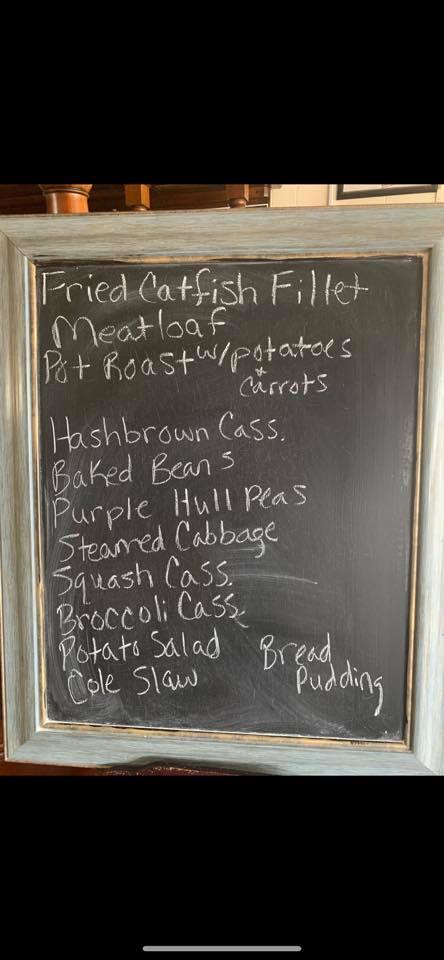 Fried Catfish Fillet
Meatloaf
Pot Roast w/potatoes
+ Carrots
Hashbrown Cass.
Baked Beans
Purple Hull Peas
Steamed Cabbage
Squash Cass.
Broccoli Cass.
Potato Salad
Cole Slaw
Bread
Pudding